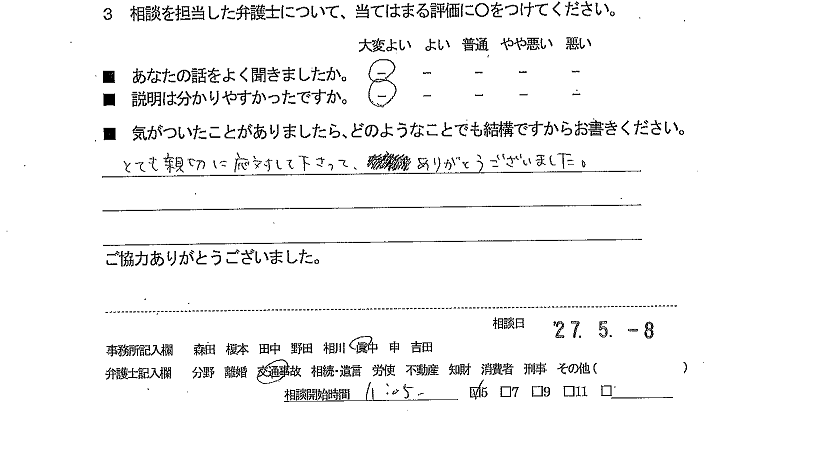 3 相談を担当した弁護士について、当てはまる評価に○をつけてください。
大変よい よい 普通 やや悪い 悪い
■ あなたの話をよく聞きましたか。 － － － － －
■ 説明は分かりやすかったですか。 － － － － －
■ 気がついたことがありましたら、どのようなことでも結構ですからお書きください。
とても親切に応対して下さって、ありがとうございました。
ご協力ありがとうございました。
相談日 '27. 5. -8
事務所記入欄 森田 榎本 田中 野田 相川 眞中 申 吉田
弁護士記入欄 分野 離婚 交通事故 相続・遺言 労使 不動産 知財 消費者 刑事 その他( )
相談開始時間 11:05- ☑5 □7 □9 □11 □